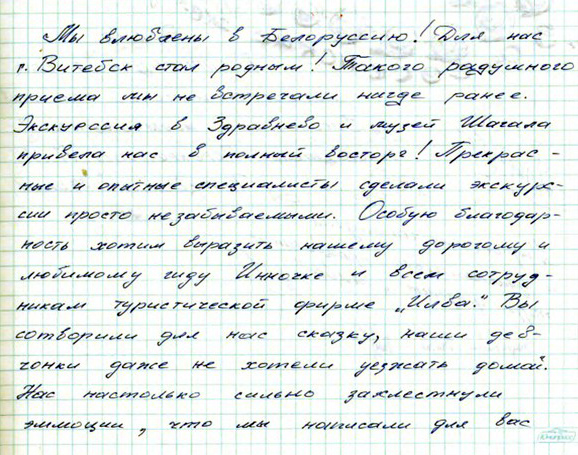 Мы влюблены в Белоруссию! Для нас
г. Витебск стал родным! Такого радушного
приема мы не встречали нигде ранее.
Экскурссия в Здравнево и музей Шагала
привела нас в полный восторг! Прекрас-
ные и опытные специалисты сделали экскурс-
сии просто незабываемыми. Особую благодар-
ность хотим выразить нашему дорогому и
любимому гиду Инночке и всем сотруд-
никам туристической фирме „Илва." Вы
сотворили для нас сказку, наши дев-
чонки даже не хотели уезжать домой.
Нас настолько сильно захлестнули
эммоции, что мы написали для вас